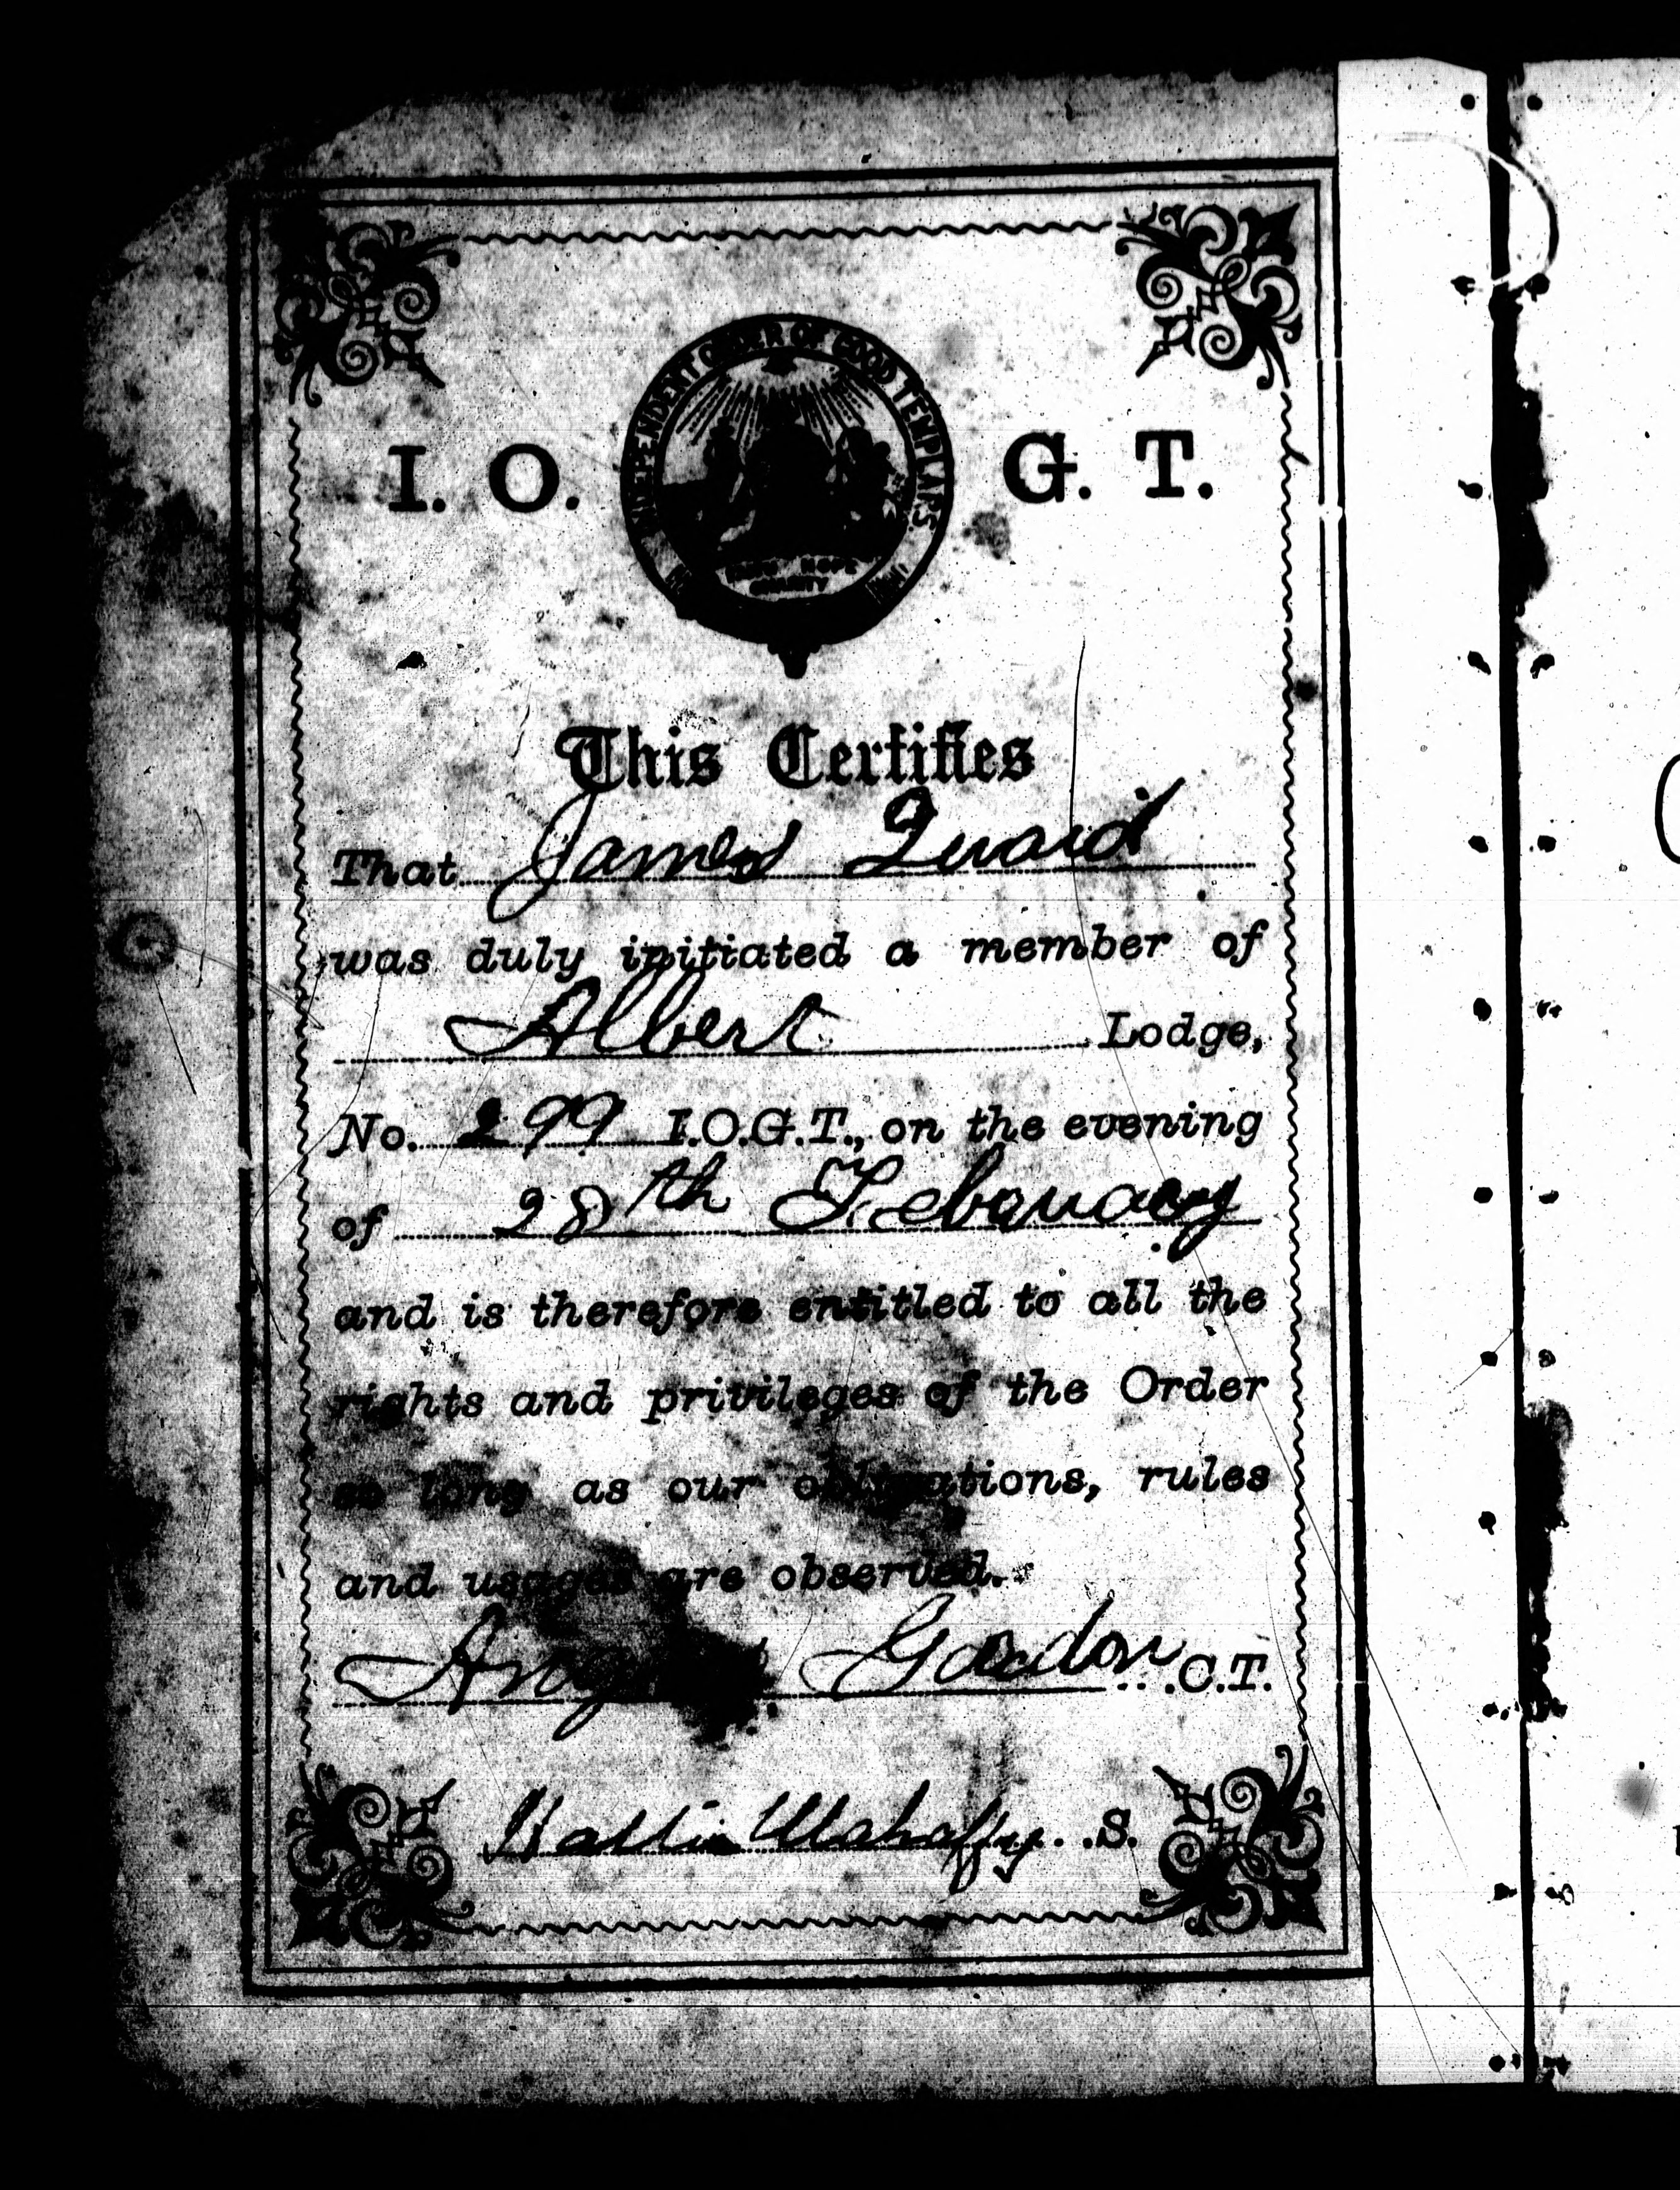 INDEPENDENT ORDER OF GOOD TEMPLARS.
I. O. G. T.
FAITH HOPE
CHARITY
This Certifies
That James Quaid
was duly initiated a member of
Albert Lodge,
No. 299 I.O.G.T., on the evening
of 28th Febauary
and is therefore entitled to all the
rights and privileges of the Order
so long as our obligations, rules
and usages are observed.
Gordon C.T.
Mahaffy S.